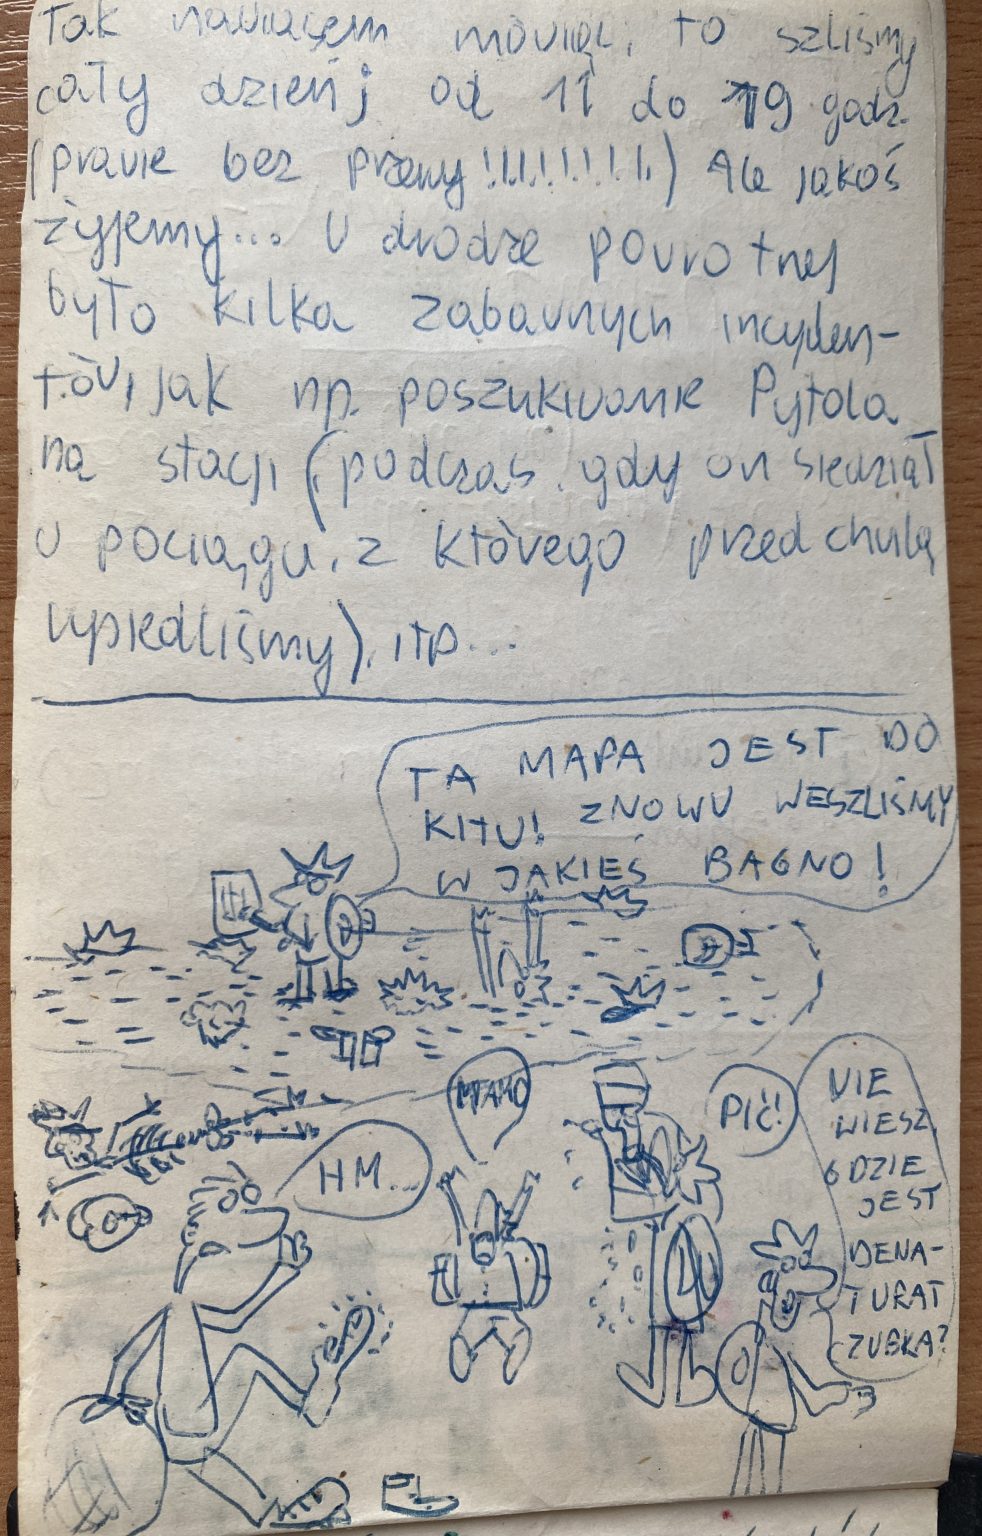 Tak nawiasem mówiąc, to szliśmy
cały dzień od 11 do 19 godz.
(prawie bez przerwy!!!!!!!!!) Ale jakoś
żyjemy... W drodze powrotnej
było kilka zabawnych incyden-
tów, jak np. poszukiwanie Pytola
na stacji (podczas gdy on siedział
w pociągu, z którego przed chwilą
wysiedliśmy), itp...
TA MAPA JEST DO
KITU! ZNOWU WESZLIŚMY
W JAKIEŚ BAGNO!
HM...
PIĆ!
NIE
WIESZ,
GDZIE
JEST
DENA-
TURAT
CZUBKA?